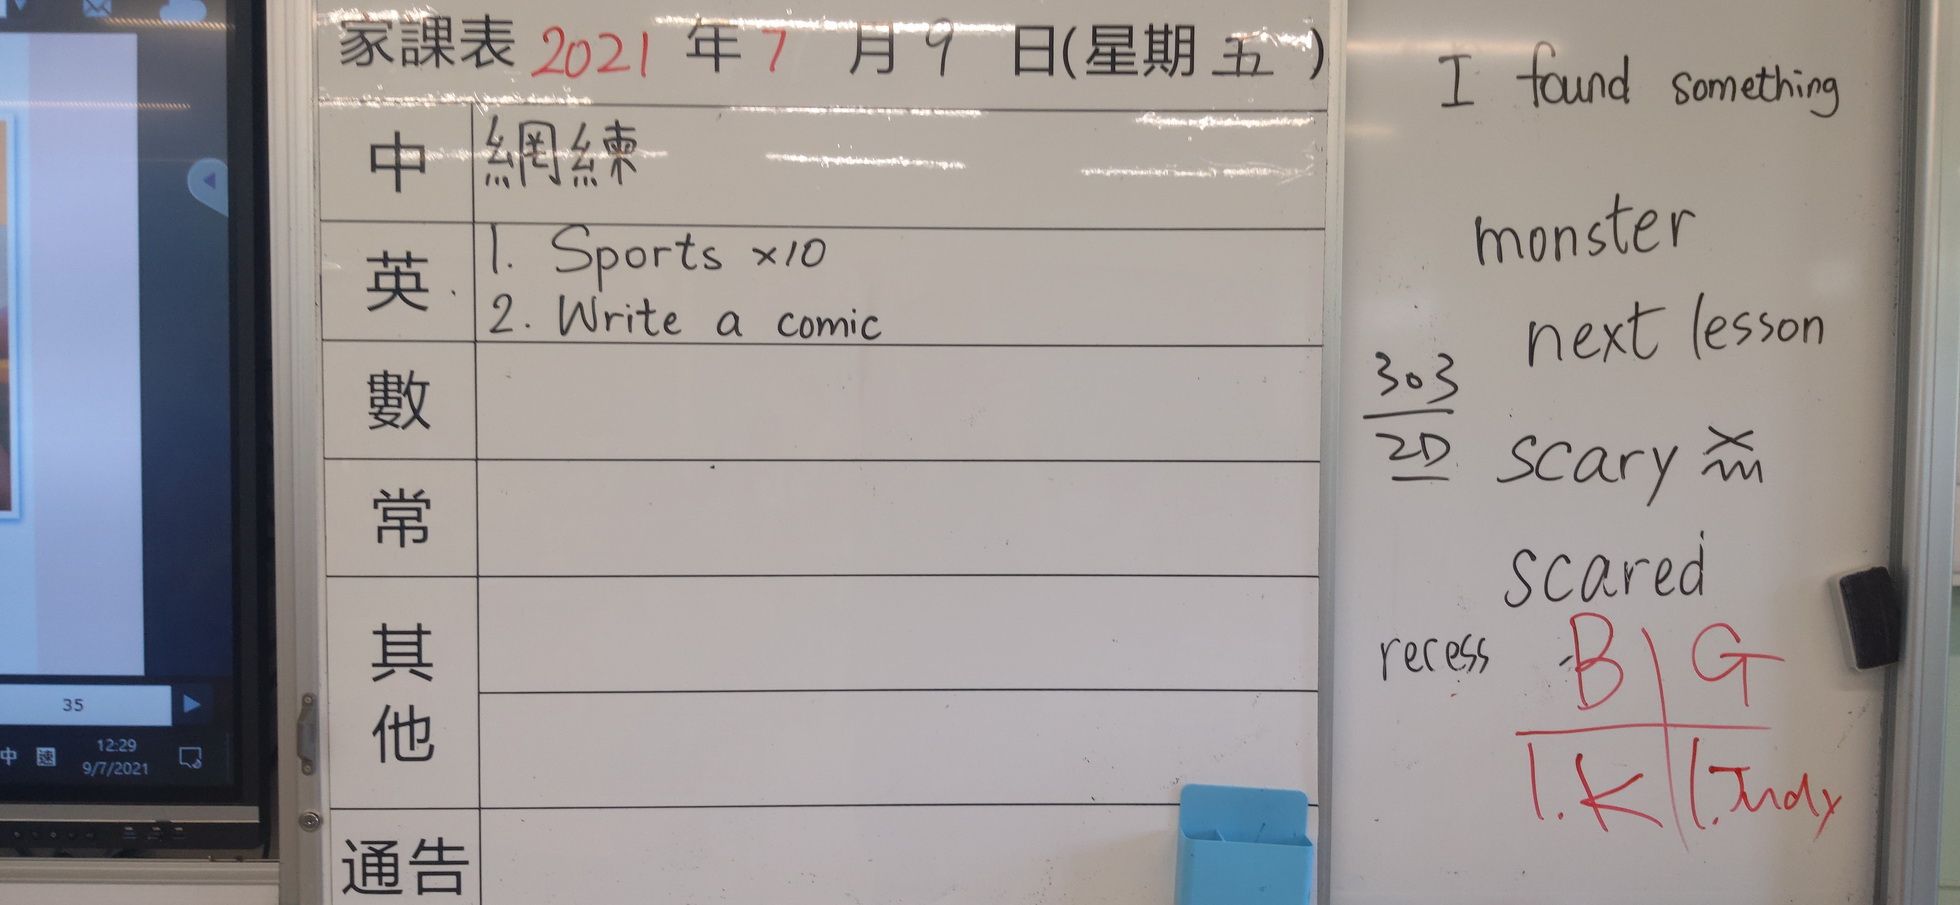 家課表 2021 年 7 月 9 日(星期 五 )
中 網練
英 1. Sports ×10
2. Write a comic
數
常
其他
通告
I found something
monster
next lesson
303
2D
scary
scared
recess
B G
1. K 1. Judy
35
中 速 12:29
9/7/2021